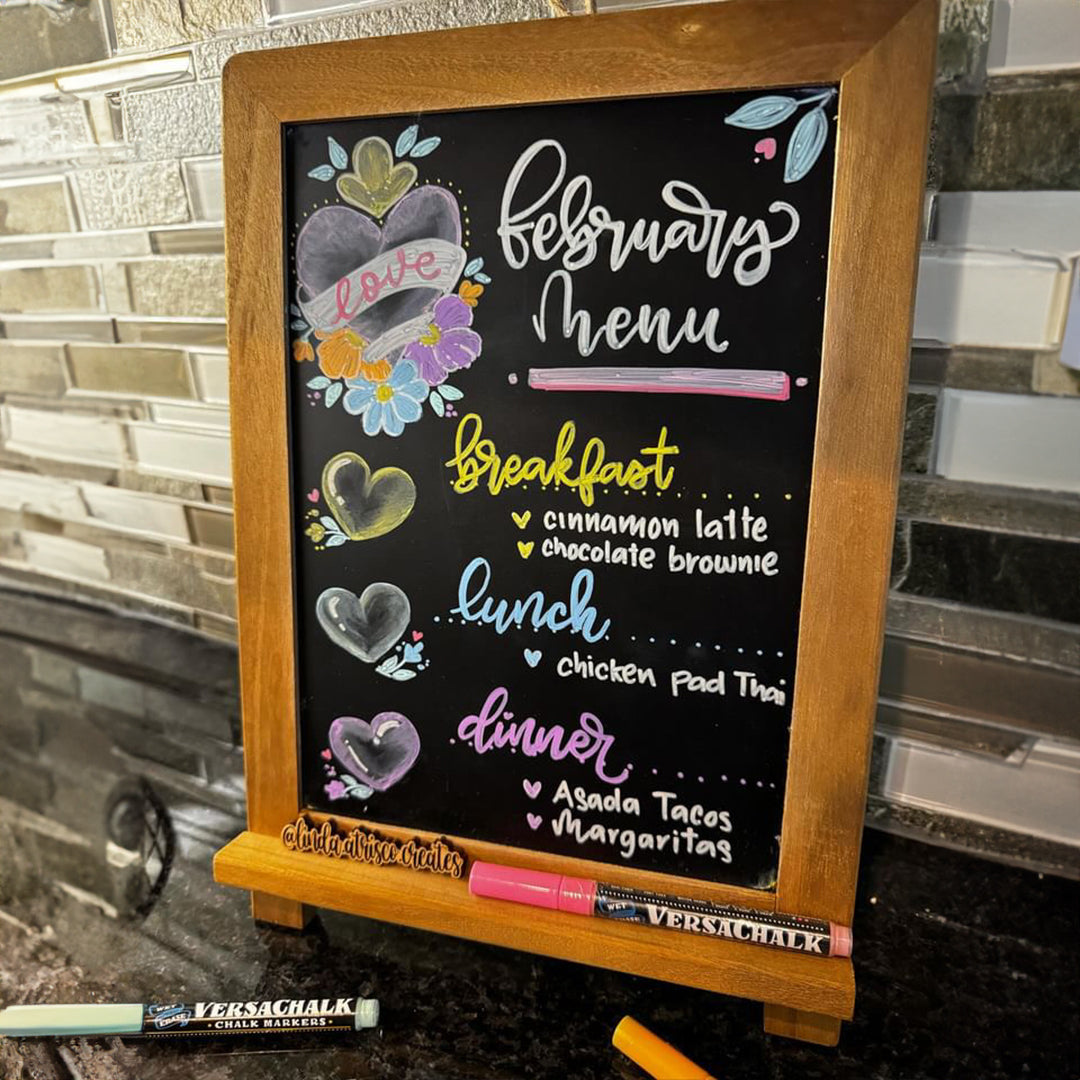 love
february
Menu
breakfast
cinnamon latte
chocolate brownie
lunch
chicken pad Thai
dinner
Asada Tacos
Margaritas
@linda.atrisco.creates
WET
ERASE
VERSACHALK
WET
ERASE
VERSACHALK
CHALK MARKERS